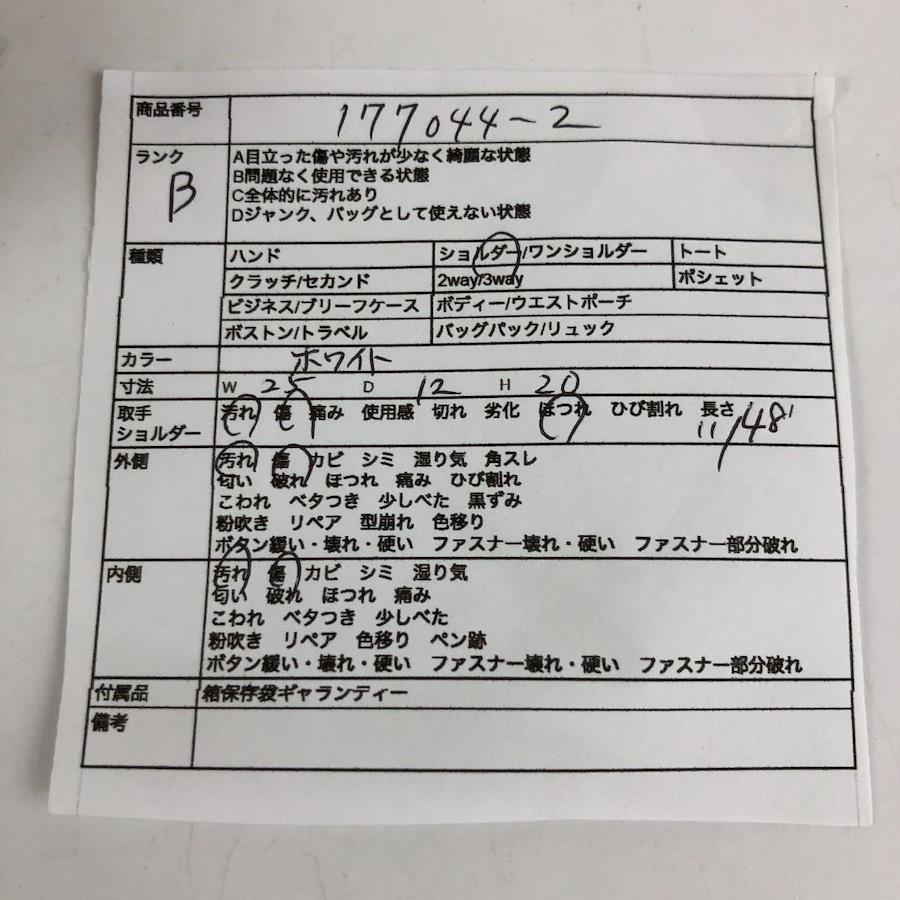 商品番号 177044-2
ランク B A目立った傷や汚れが少なく綺麗な状態
B問題なく使用できる状態
C全体的に汚れあり
Dジャンク、バッグとして使えない状態
種類 ハンド ショルダー/ワンショルダー トート
クラッチ/セカンド 2way/3way ポシェット
ビジネス/ブリーフケース ボディー/ウエストポーチ
ボストン/トラベル バッグパック/リュック
カラー ホワイト
寸法 W 25 D 12 H 20
取手 汚れ 傷 痛み 使用感 切れ 劣化 ほつれ ひび割れ 長さ
ショルダー 11/48
外側 汚れ 傷 カビ シミ 湿り気 角スレ
匂い 破れ ほつれ 痛み ひび割れ
こわれ ベタつき 少しべた 黒ずみ
粉吹き リペア 型崩れ 色移り
ボタン緩い・壊れ・硬い ファスナー壊れ・硬い ファスナー部分破れ
内側 汚れ 傷 カビ シミ 湿り気
匂い 破れ ほつれ 痛み
こわれ ベタつき 少しべた
粉吹き リペア 色移り ペン跡
ボタン緩い・壊れ・硬い ファスナー壊れ・硬い ファスナー部分破れ
付属品 箱保存袋ギャランディー
備考